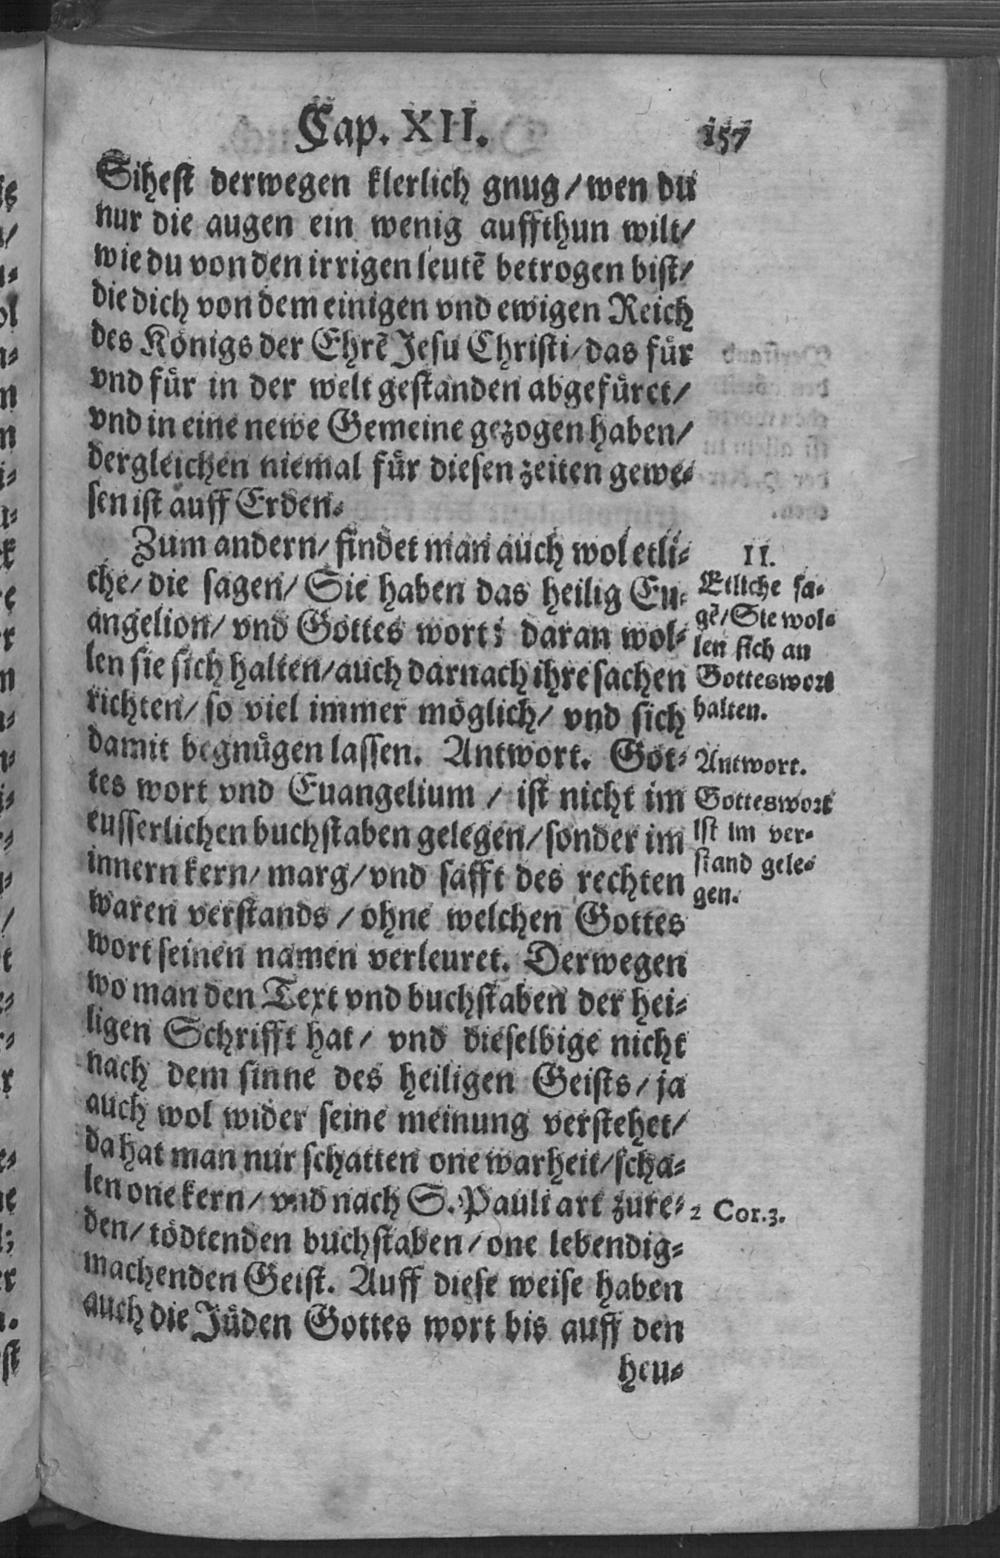 Cap. XII. 157
Sihest derwegen klerlich gnug/wen du
nur die augen ein wenig auffthun wilt/
wie du von den irrigen leutē betrogen bist/
die dich von dem einigen vnd ewigen Reich
des Königs der Ehrē Jesu Christi/das für
vnd für in der welt gestanden abgefüret/
vnd in eine newe Gemeine gezogen haben/
dergleichen niemal für diesen zeiten gewe-
sen ist auff Erden.
Zum andern/findet man auch wol etli-
che/die sagen/Sie haben das heilig Eu-
angelion/vnd Gottes wort: daran wol-
len sie sich halten/auch darnach ihre sachen
richten/so viel immer möglich/vnd sich
damit begnügen lassen. Antwort. Got-
tes wort vnd Euangelium/ist nicht im
eusserlichen buchstaben gelegen/sonder im
innern kern/marg/vnd safft des rechten
waren verstands/ohne welchen Gottes
wort seinen namen verleuret. Derwegen
wo man den Text vnd buchstaben der hei-
ligen Schrifft hat/vnd dieselbige nicht
nach dem sinne des heiligen Geists/ja
auch wol wider seine meinung verstehet/
da hat man nur schatten one warheit/scha-
len one kern/vnd nach S. Pauli art zure-
den/tödtenden buchstaben/one lebendig-
machenden Geist. Auff diese weise haben
auch die Jüden Gottes wort bis auff den
heu-
II.
Etliche sa-
gē/Sie wol-
len sich an
Gotteswort
halten.
Antwort.
Gotteswort
ist im ver-
stand gele-
gen.
2 Cor.3.